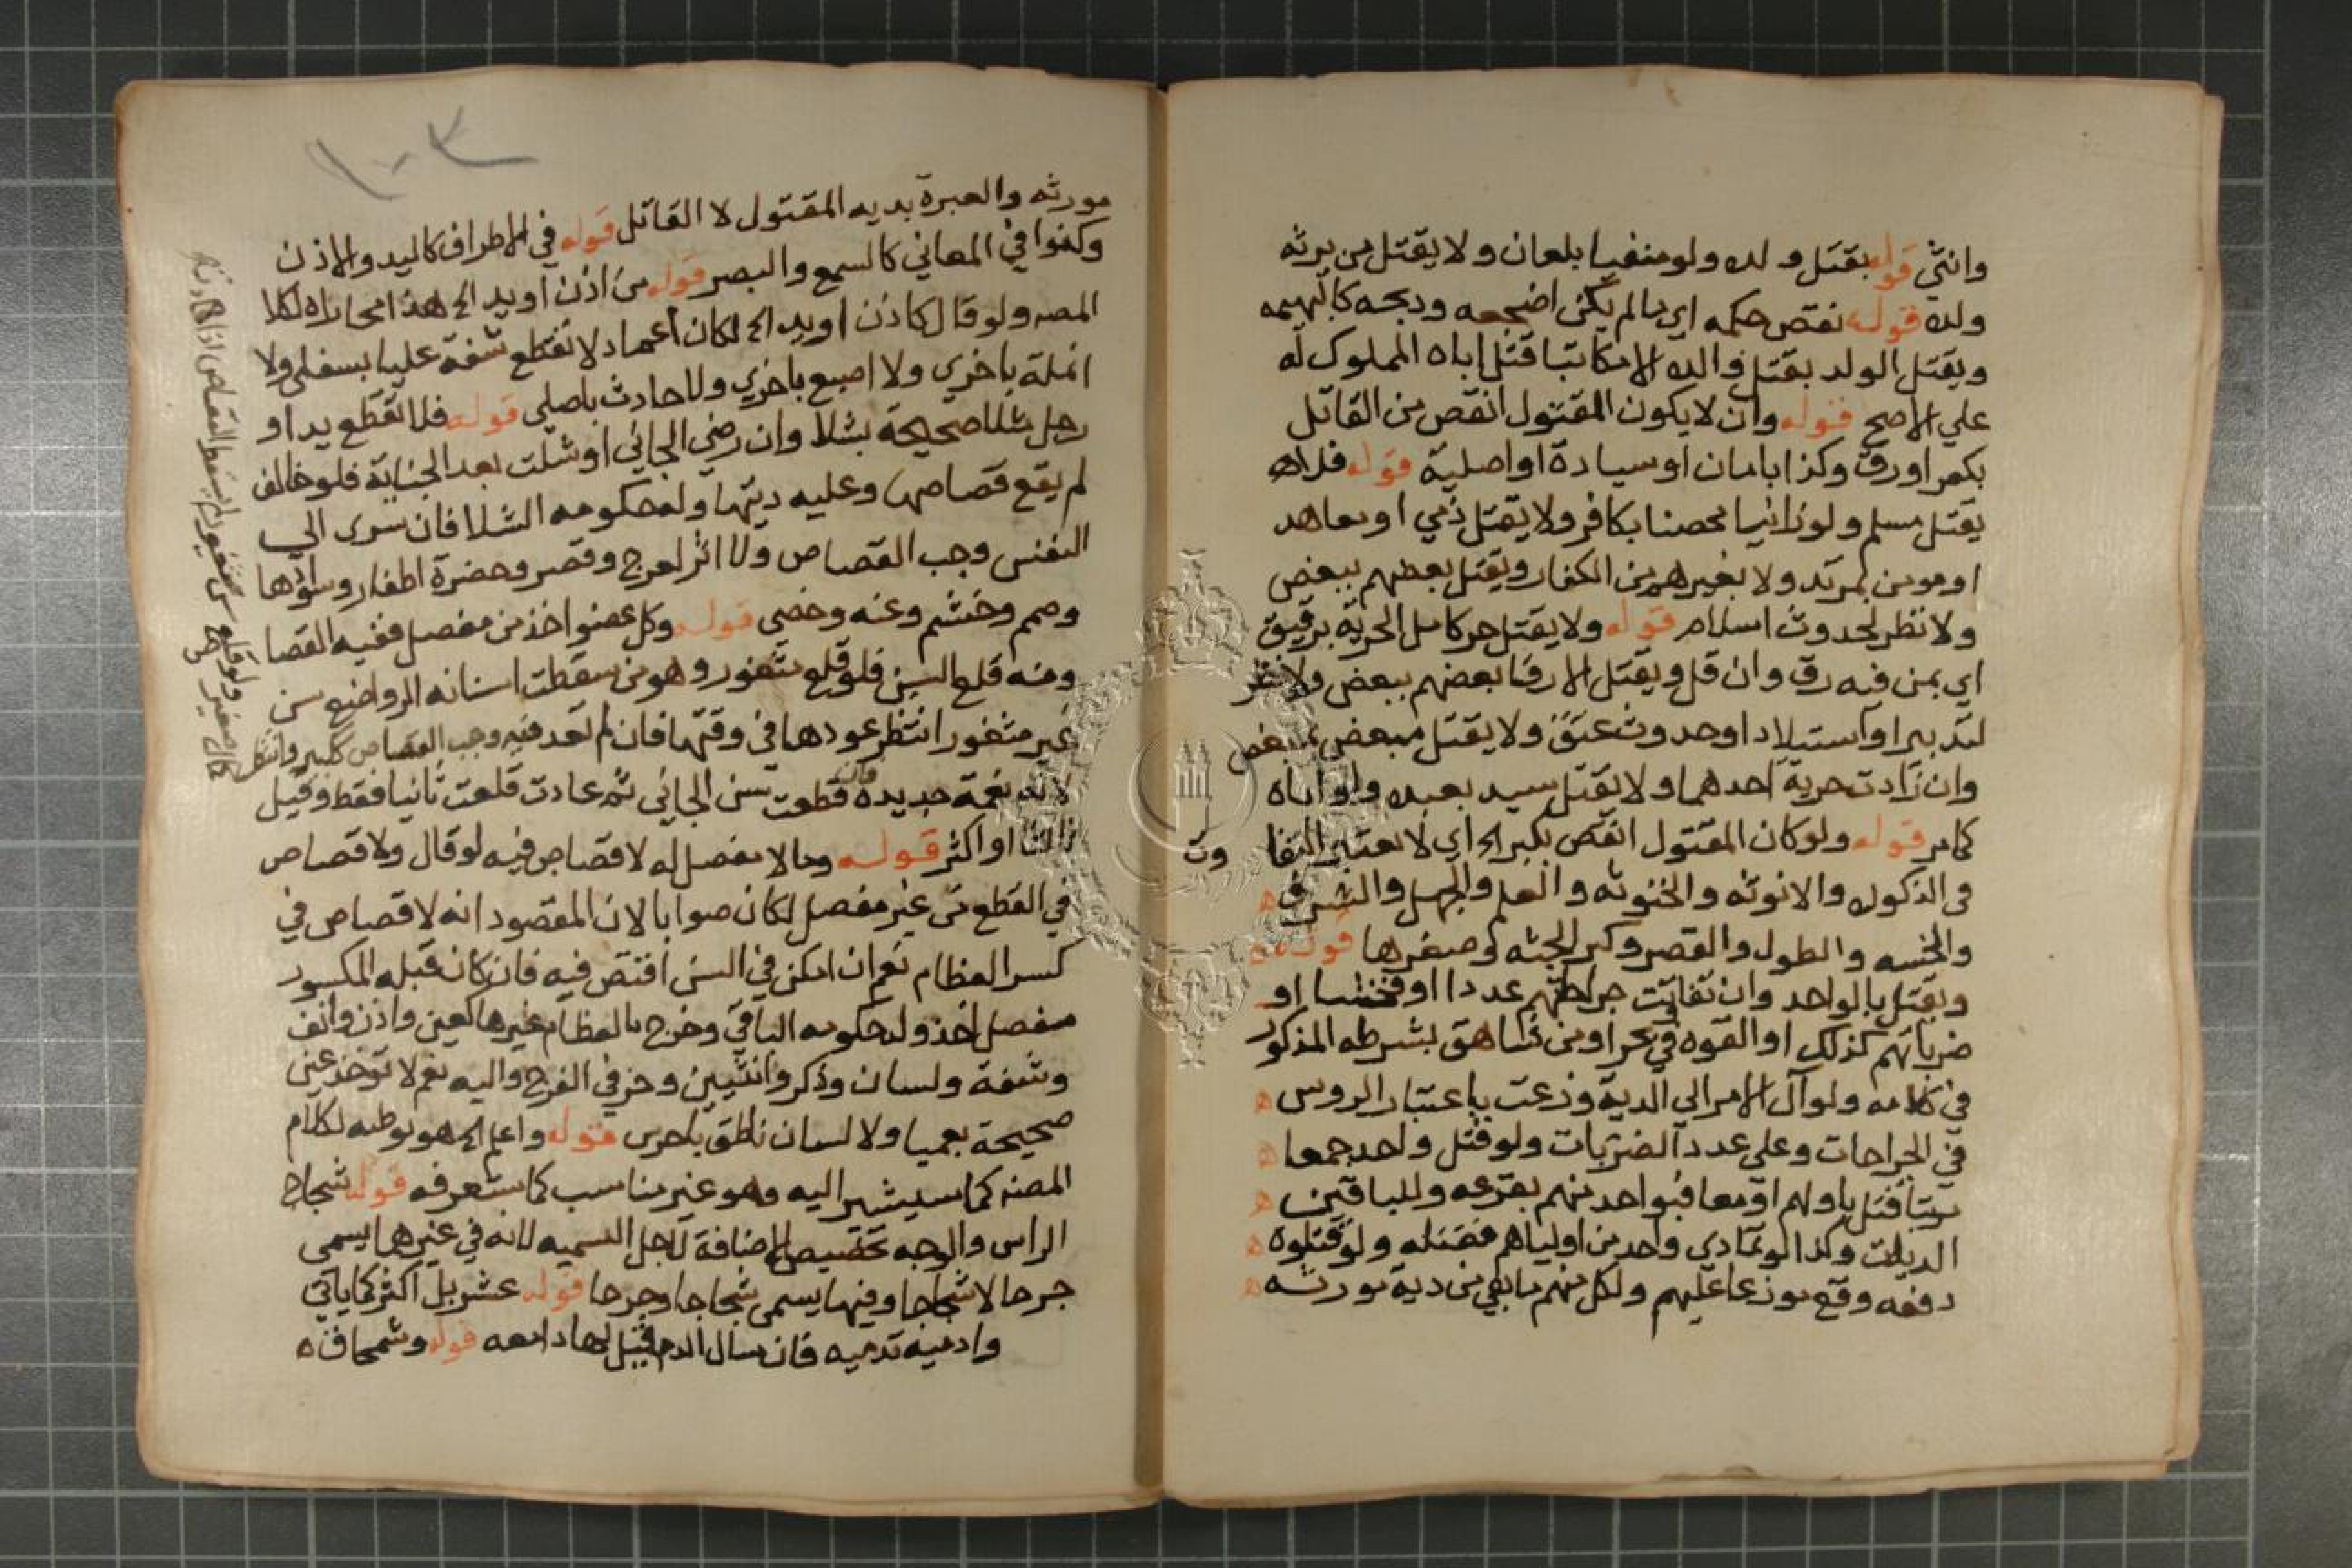 وانثي قوله بقتل ولده ولو منفيا بلعان ولا يقتل من يرثه
ولده قوله نقض حكمه اي ما لم يكن اضجعه وذبحه كالبهيمه
ويقتل الولد بقتل والده الا مكاتبا قتل اباه المملوك له
علي الاصح قوله وان لا يكون المقتول انقص من القاتل
بكفر اورق وكذا بامان او سيادة او اصلية قوله فلا
يقتل مسلم ولو زانيا محصنا بكافر ولا يقتل ذمي او معاهد
او مومن بمرتد ولا بغيرهم من الكفار ويقتل بعضهم ببعض
ولا نظر لحدوث اسلام قوله ولا يقتل حر كامل الحرية برقيق
اي بمن فيه رق وان قل ويقتل الارقا بعضهم ببعض ولا نظر
لتدبير او استيلاد او حدوث عتق ولا يقتل مبعض بمبعض
وان زادت حرية احدهما ولا يقتل سيد بعبده ولو اباه
كما مر قوله ولو كان المقتول انقص بكبر الخ اي لا يعتبر التفا
وت
في الذكوره والانوثه والخنوثه والعلم والجهل والشرف
والخسه والطول والقصر وكبر الجثه وصغرها قوله
ويقتل بالواحد وان تفاوتت جراحتهم عددا او فحشا او
ضرباتهم كذلك او القوه في بحر او من شاهق بشرطه المذكور
في كلامه ولو آل الامر الي الدية وزعت باعتبار الروس
في الجراحات وعلي عدد الضربات ولو قتل واحد جمعا
مرتبا قتل باولهم او معا فبواحد منهم بقرعه وللباقين
الديات وكذا لو تمادي واحد من اولياهم فقتله ولو قتلوه
دفعه وقع موزعا عليهم ولكل منهم ما بقي من دية مورثه
١٠٣
مورثه والعبرة بديه المقتول لا القاتل قوله في الاطراف كاليد والاذن
وكفوا في المعاني كالسمع والبصر قوله من اذن او يد الخ هذا مجاراه لكلا
المصه ولو قال كاذن او يد الخ لكان اعم ولا تقطع شفة عليا بسفلي ولا
انملة باخري ولا اصبع باخري ولا حادث باصلي قوله فلا تقطع يد او
رجل شلا صحيحة بشلا وان رضي الجاني او شلت بعد الجناية فلو خالف
لم يقع قصاصها وعليه ديتها وله حكومه الشلا فان سري الي
النفس وجب القصاص ولا اثر لعرج وقصر وخضرة اظفار وسوادها
وصمم وخشم وعنه وخصي قوله وكل عضو اخذ من مفصل ففيه القصا
ومنه قلع السن فلو قلع مثغور وهو من سقطت اسنانه الرواضع سن
غير مثغور انتظر عودها في وقتها فان لم تعد فيه وجب القصاص كلسير وانثكل
لانه نعمة جديده فان قطعت سن الجاني ثم عادت قلعت ثانيا فقط وقيل
ثالثا او اكثر قوله وما لا مفصل له لا قصاص فيه لو قال ولا قصاص
في القطع من غير مفصل لكان صوابا لان المقصود انه لا قصاص في
كسر العظام نعم ان امكن في السن اقتص فيه فان كان قبله المكسور
مفصل اخذ وله حكومه الباقي وخرج بالعظام غيرها كعين واذن وانف
وشفة ولسان وذكر وانثيين وحز في الفرج واليه نعم لا توخذ عين
صحيحة بعميا ولا لسان ناطق باخرس قوله واعلم الخ هو توطيه لكلام
المصنه كما سيشير اليه وهو غير مناسب كما ستعرفه قوله شجاج
الراس والوجه تخصيص الاضافة لاجل التسميه لانه في غيرهما يسمي
جرحا لا شجاجا وفيها يسمي شجاجا وجرحا قوله عشر بل اكثر كما ياتي
وادمينه تدميه فان سال الدم قيل لها دامعه قوله وسمحاق